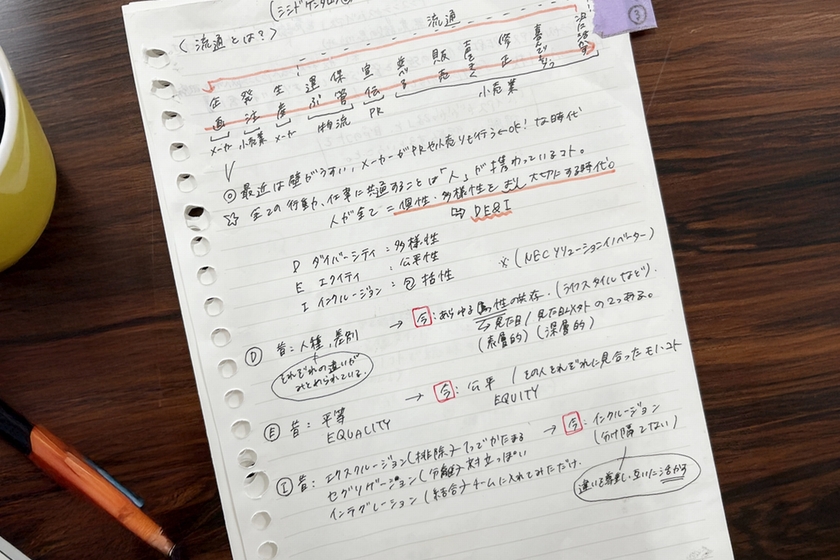 ③
〈流通とは?〉
流通
企画 発注 生産 運ぶ 保管 宣伝 並べる 販売 修正
メーカー 小売業 メーカー 物流 PR 小売業
◎ 最近は壁がうすい、メーカーがPRや小売りも行う←OK!な時代
☆ 全ての行動、仕事に共通することは「人」が携わっているコト。
人が全て = 個性・多様性をより大切にする時代。
DE&I
D ダイバーシティ : 多様性
E エクイティ : 公平性
I インクルージョン : 包括性
※(NECソリューションイノベーター)
Ⓓ 昔: 人種、差別 → 今: あらゆる属性の共存。(ライフスタイルなど)。
見た目/見た目以外の2つある。
(表層的)(深層的)
それぞれの違いがみとめられている。
Ⓔ 昔: 平等 → 今: 公平 / その人それぞれに見合ったモノ・コト
EQUALITY EQUITY
Ⓘ 昔: エクスクルージョン(排除)→1つでかたまる → 今: インクルージョン
セグリゲーション(分離)→対立っぽい (分け隔てない)
インテグレーション(結合)→チームに入れてみただけ.
違いを尊重し互いに活かす